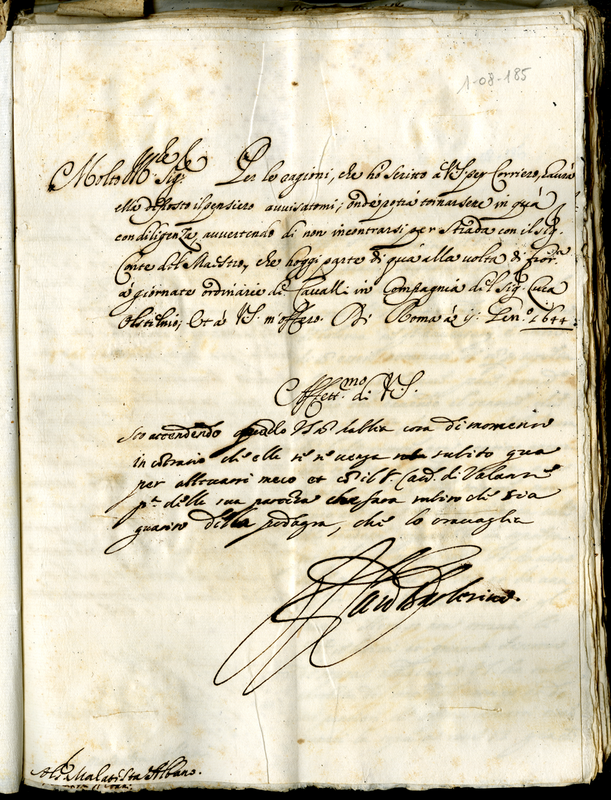 1-08-185
Molto Ill.re Sig.re Per le ragioni, che hò scritto à V.S. per Corriero, haurà
ella deposto il pensiero avvisatomi; onde potrà tornarsene in quà
con diligenza, avvertendo di non incontrarsi per strada con il Sig.
Conte del Maestro, che hoggi parte di quà alla volta di
à giornate ordinarie di Cavalli in Compagnia del Sig. Luca
Et à V.S. m'offero. Di Roma à 9. Gen.o 1644.
Affett.mo di V.S.
Sto attendendo quando V.S. habbia cosa di momento
in contrario che ella se ne venga subito qua
per meco et con il S. Card. di Valanze
p.a della sua che sara subito che sia
guarito della podagra, che lo travaglia
Il Card. Barberino.
Al S. Malatesta Albano.